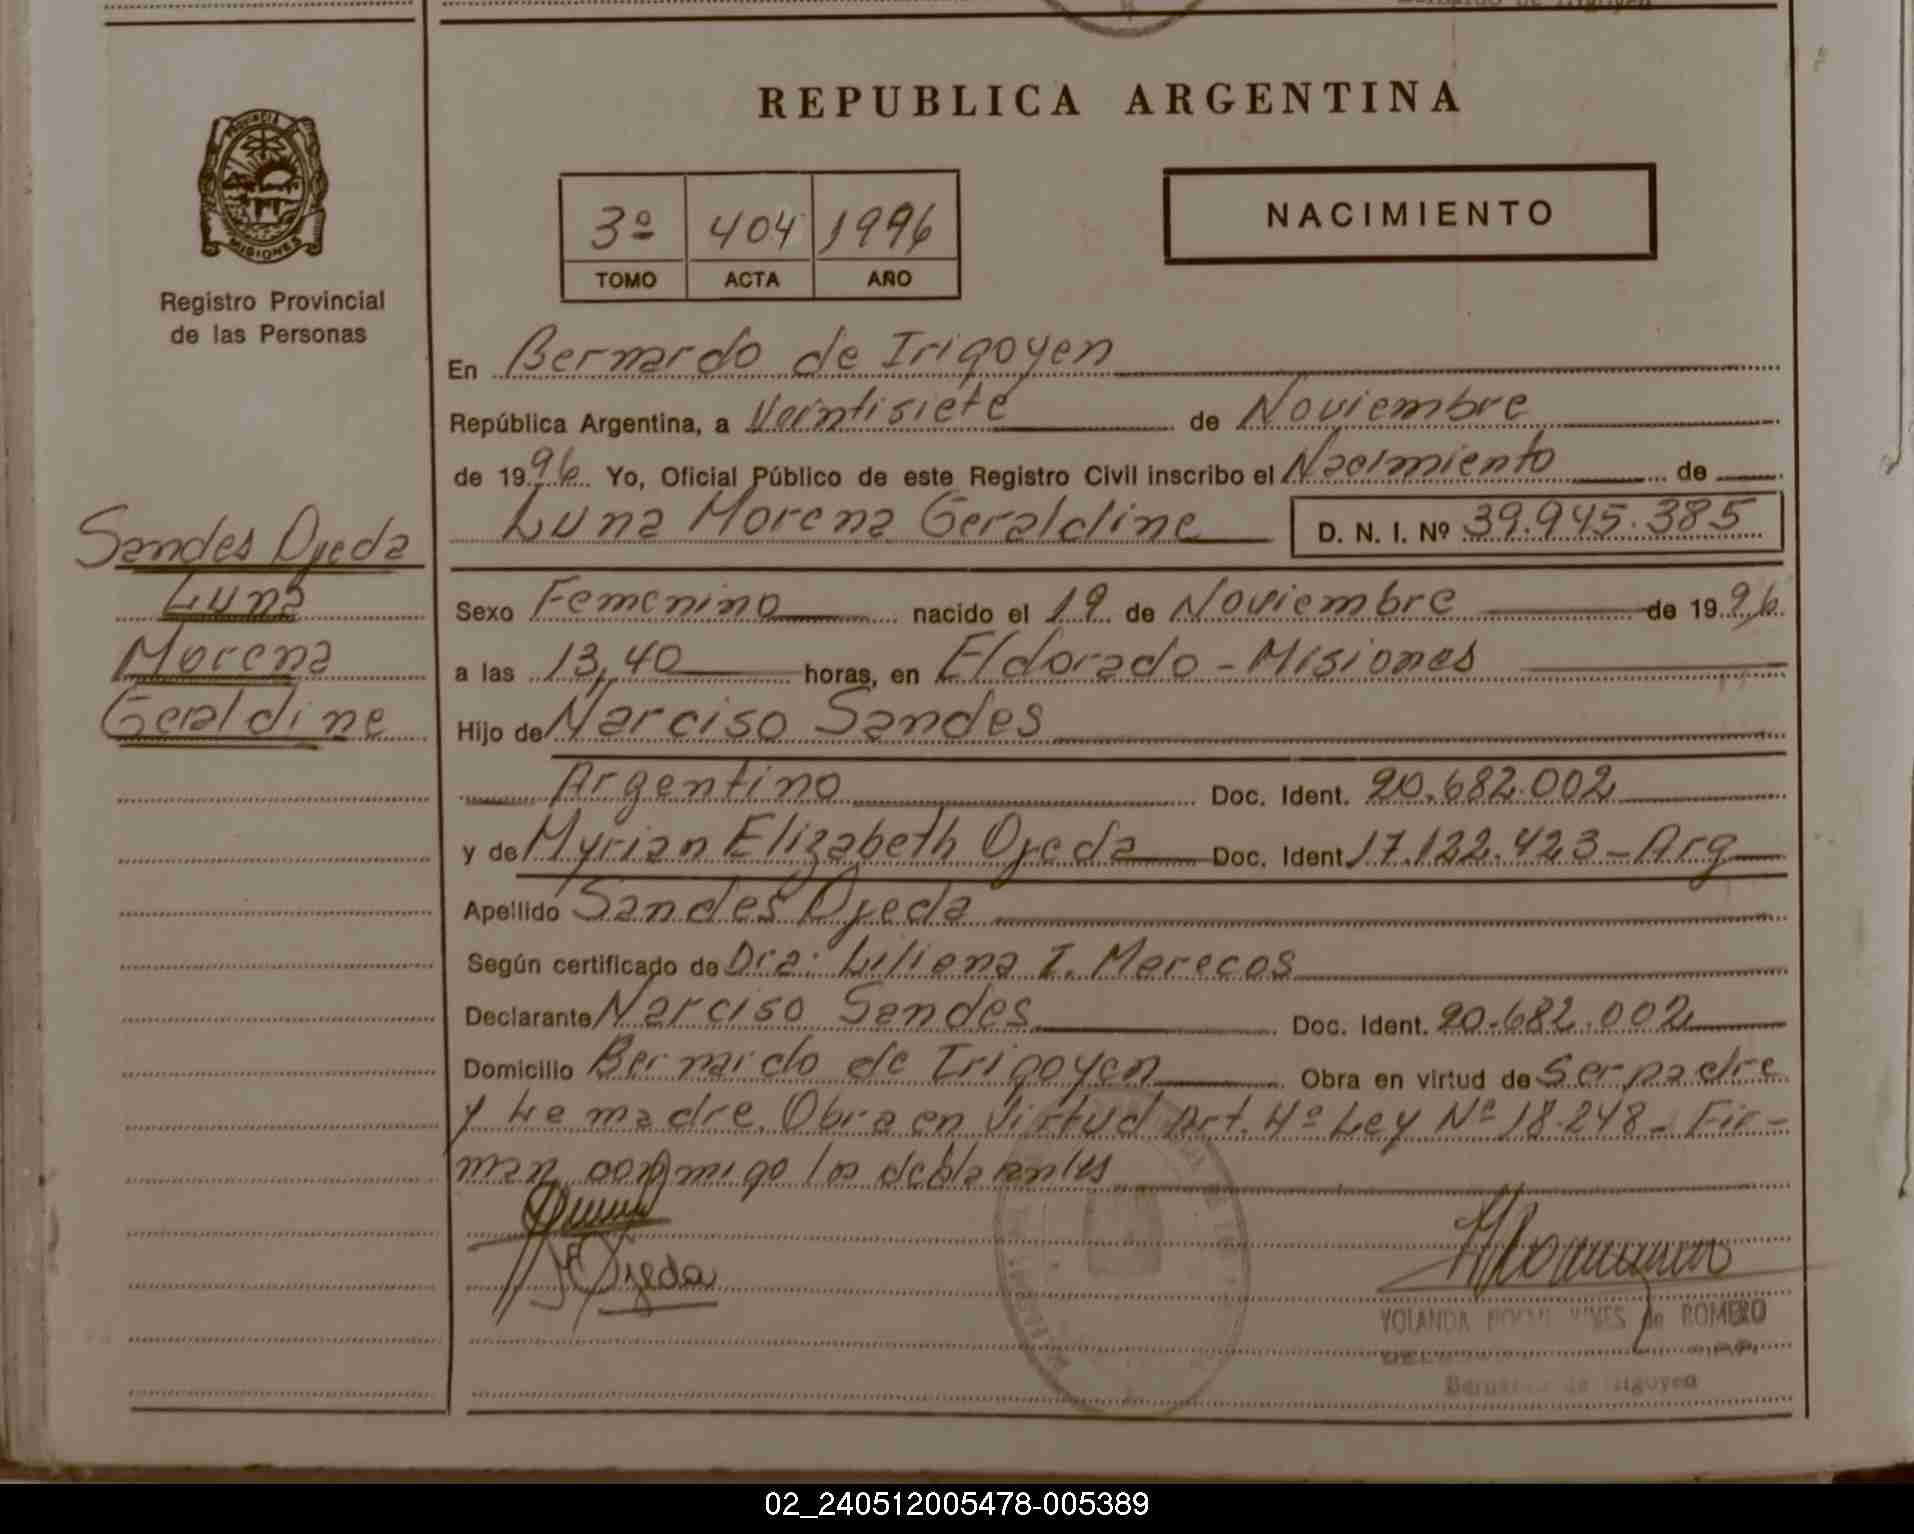 REPUBLICA ARGENTINA
PROVINCIA
MISIONES
Registro Provincial
de las Personas
3º 404 1996
TOMO ACTA AÑO
NACIMIENTO
En Bernardo de Irigoyen
República Argentina, a Veintisiete de Noviembre
de 1996 Yo, Oficial Público de este Registro Civil inscribo el Nacimiento de
Luna Morena Geraldine D. N. I. Nº 39.945.385
Sandes Ojeda
Luna
Morena
Geraldine
Sexo Femenino nacido el 19 de Noviembre de 1996
a las 13,40 horas, en Eldorado - Misiones
Hijo de Narciso Sandes
Argentino Doc. Ident. 20.682.002
y de Myrian Elizabeth Ojeda Doc. Ident. 17.122.423 - Arg
Apellido Sandes Ojeda
Según certificado de Dra: Liliana I. Merecos
Declarante Narciso Sandes Doc. Ident. 20.682.002
Domicilio Bernardo de Irigoyen Obra en virtud de ser padre
y La madre. Obra en Virtud Art. 4º Ley Nº 18.248 - Fir-
man conmigo los declarantes
Ojeda
YOLANDA de ROMERO
Bernardo de Irigoyen
02_240512005478-005389